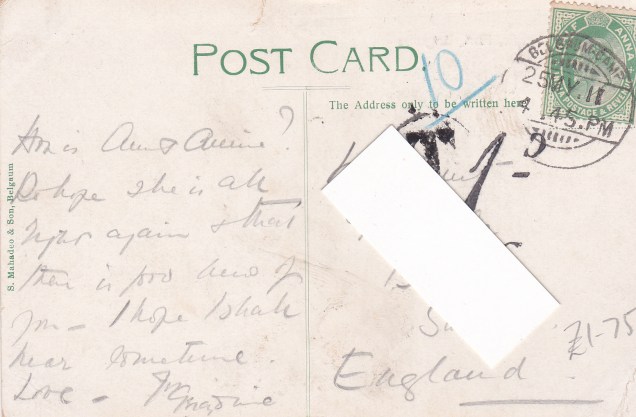 POST CARD.
10
The Address only to be written here
HALF ANNA
BELGAUM-CAMP
25 11
4 45.PM
S. Mahadeo & Son, Belgaum.
How is Aunt Annie?
Do hope she is all
right again & that
there is good news of
you - I hope I shall
hear sometime.
Love -
T 1-
England.
£1-75